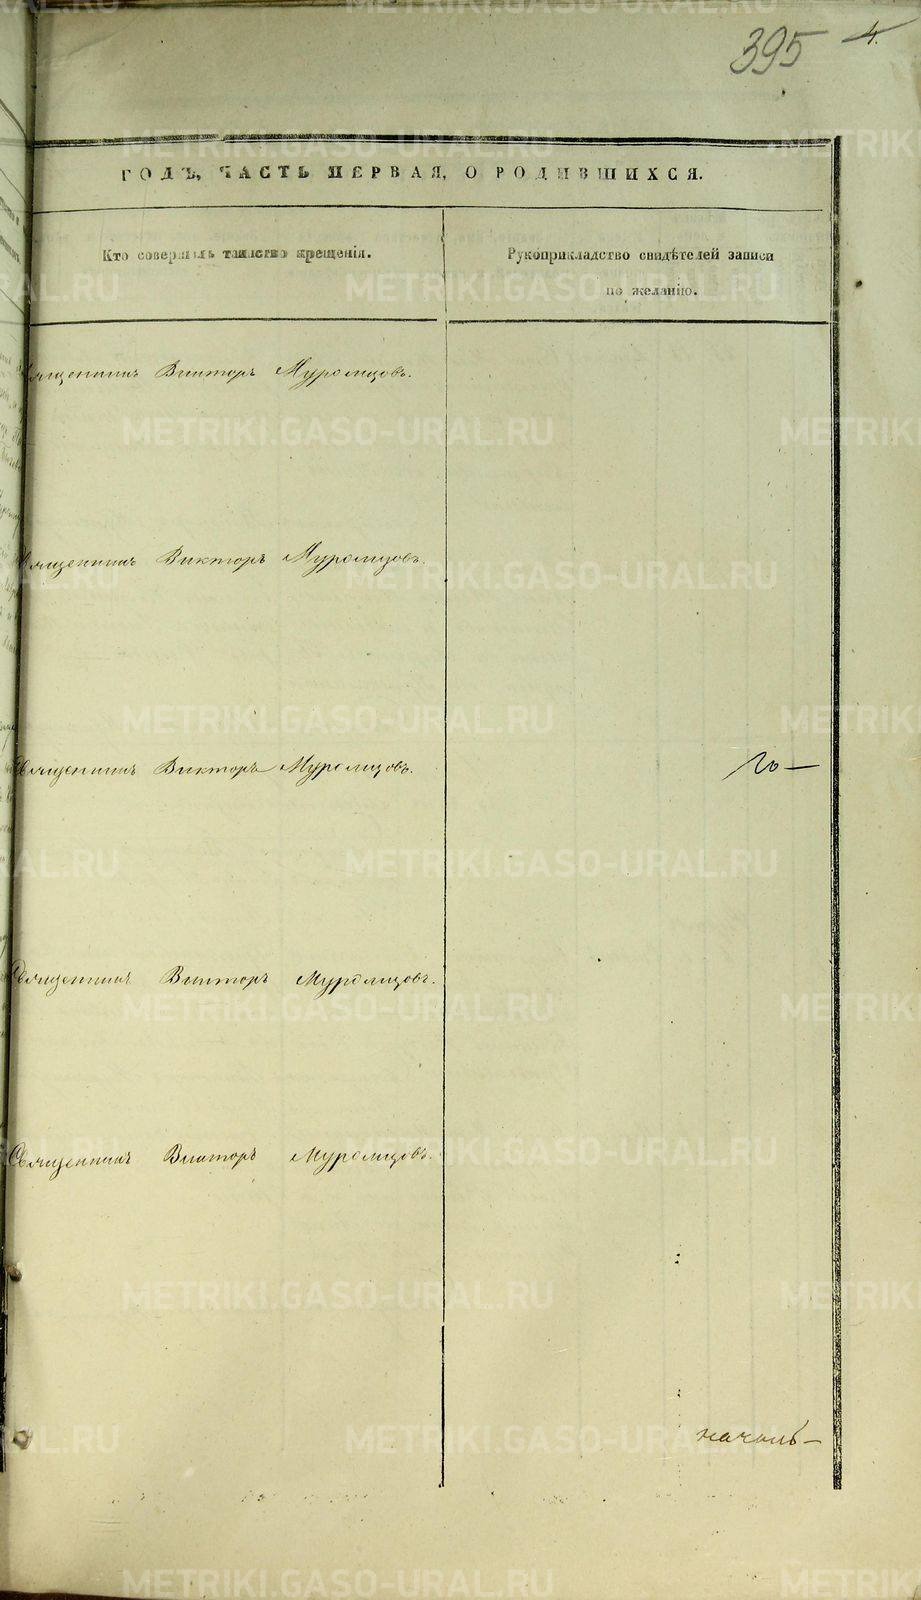 395 4.
ГОДЪ, ЧАСТЬ ПЕРВАЯ, О РОДИВШИХСЯ.
Кто совершилъ таинство крещенія.
Рукоприкладство свидѣтелей записи
по желанію.
Священникъ Викторъ Муромцовъ.
Священникъ Викторъ Муромцовъ.
Священникъ Викторъ Муромцовъ.
Священникъ Викторъ Муромцовъ.
Священникъ Викторъ Муромцовъ.
METRIKI.GASO-URAL.RU